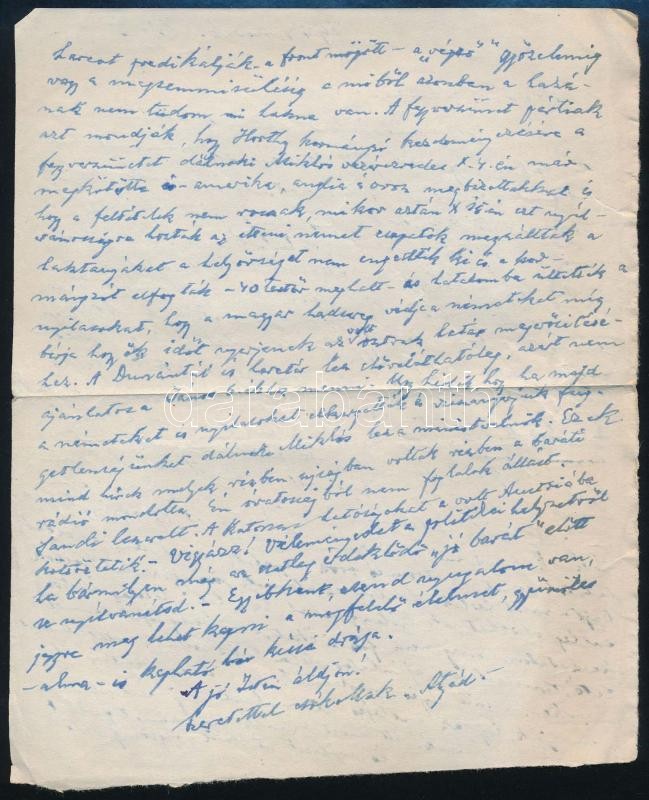 harcot predikálják a front mögött - a "végső" győzelemig
vagy a megsemmisülésig a miből azonban a hazá-
nak nem tudom mi haszna van. A fegyverszünet pártiak
azt mondják, hogy Horthy kormányzó kezdeményezésére a
fegyverszünetet dálnoki Miklós vezérezredes X. 4-én már
megkötötte is - amerika, anglia a orosz megbizottakkal és
hogy a feltételek nem rosszak, mikor aztán X 15-én ezt nyil-
vánosságra hozták az itteni német csapatok megszállták a
laktanyákat a helyőrséget nem engedték ki és a kor-
mányzót elfogták - 40 testőr meghalt - és hatalomba ültették a
nyilasokat, hogy a magyar hadsereg védje a németeket míg
birja hogy ők időt nyerjenek az volt osztrák határ megerősitésé-
hez. A Dunántúl is harctér lesz előreláthatólag, azért nem
ajánlatos a menni. Ugy hirlik hogy ha majd
a németeket és nyilasokat elkergetik a füg-
getlenségünket dálnoki Miklós lesz a miniszterelnök. Ezek
mind hirek melyek részben ujságban voltak részben a baráti
rádió mondotta. Én óvatosságból nem foglalok állást.
Sándi leszerelt. A katonai hatóságokat a volt Ausztriába
költöztetik. - Vigyázz! Véleményedet a politikai helyzetről
ha bármilyen még az esetleg érdeklődő "jó barát" előtt
se nyilvánitsd. - Egyébként, csend nyugalom van,
jegyre meg lehet kapni a megfelelő élelmet, gyümölcs
- alma - is kapható bár kissé drága.
A jó Isten áldjon!
Szeretettel csókollak Atyád. -
darabanth